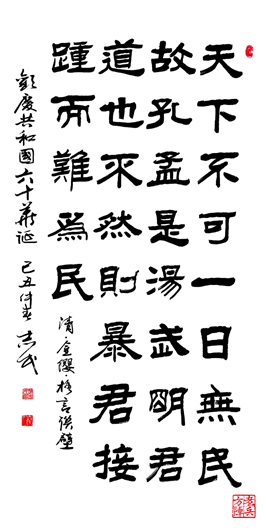 天下不可一日無民
故孔孟是湯武明君
道也不然則暴君接
踵而難為民
清·金纓·格言聯璧
歡慶共和國六十華誕 己丑仲春